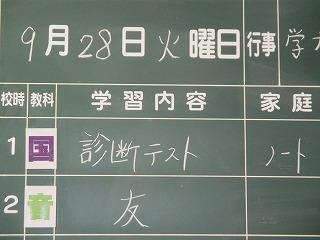 9月28日火曜日 行事 学
校時 教科 学習内容 家庭
1 国 診断テスト ノート
2 音 友